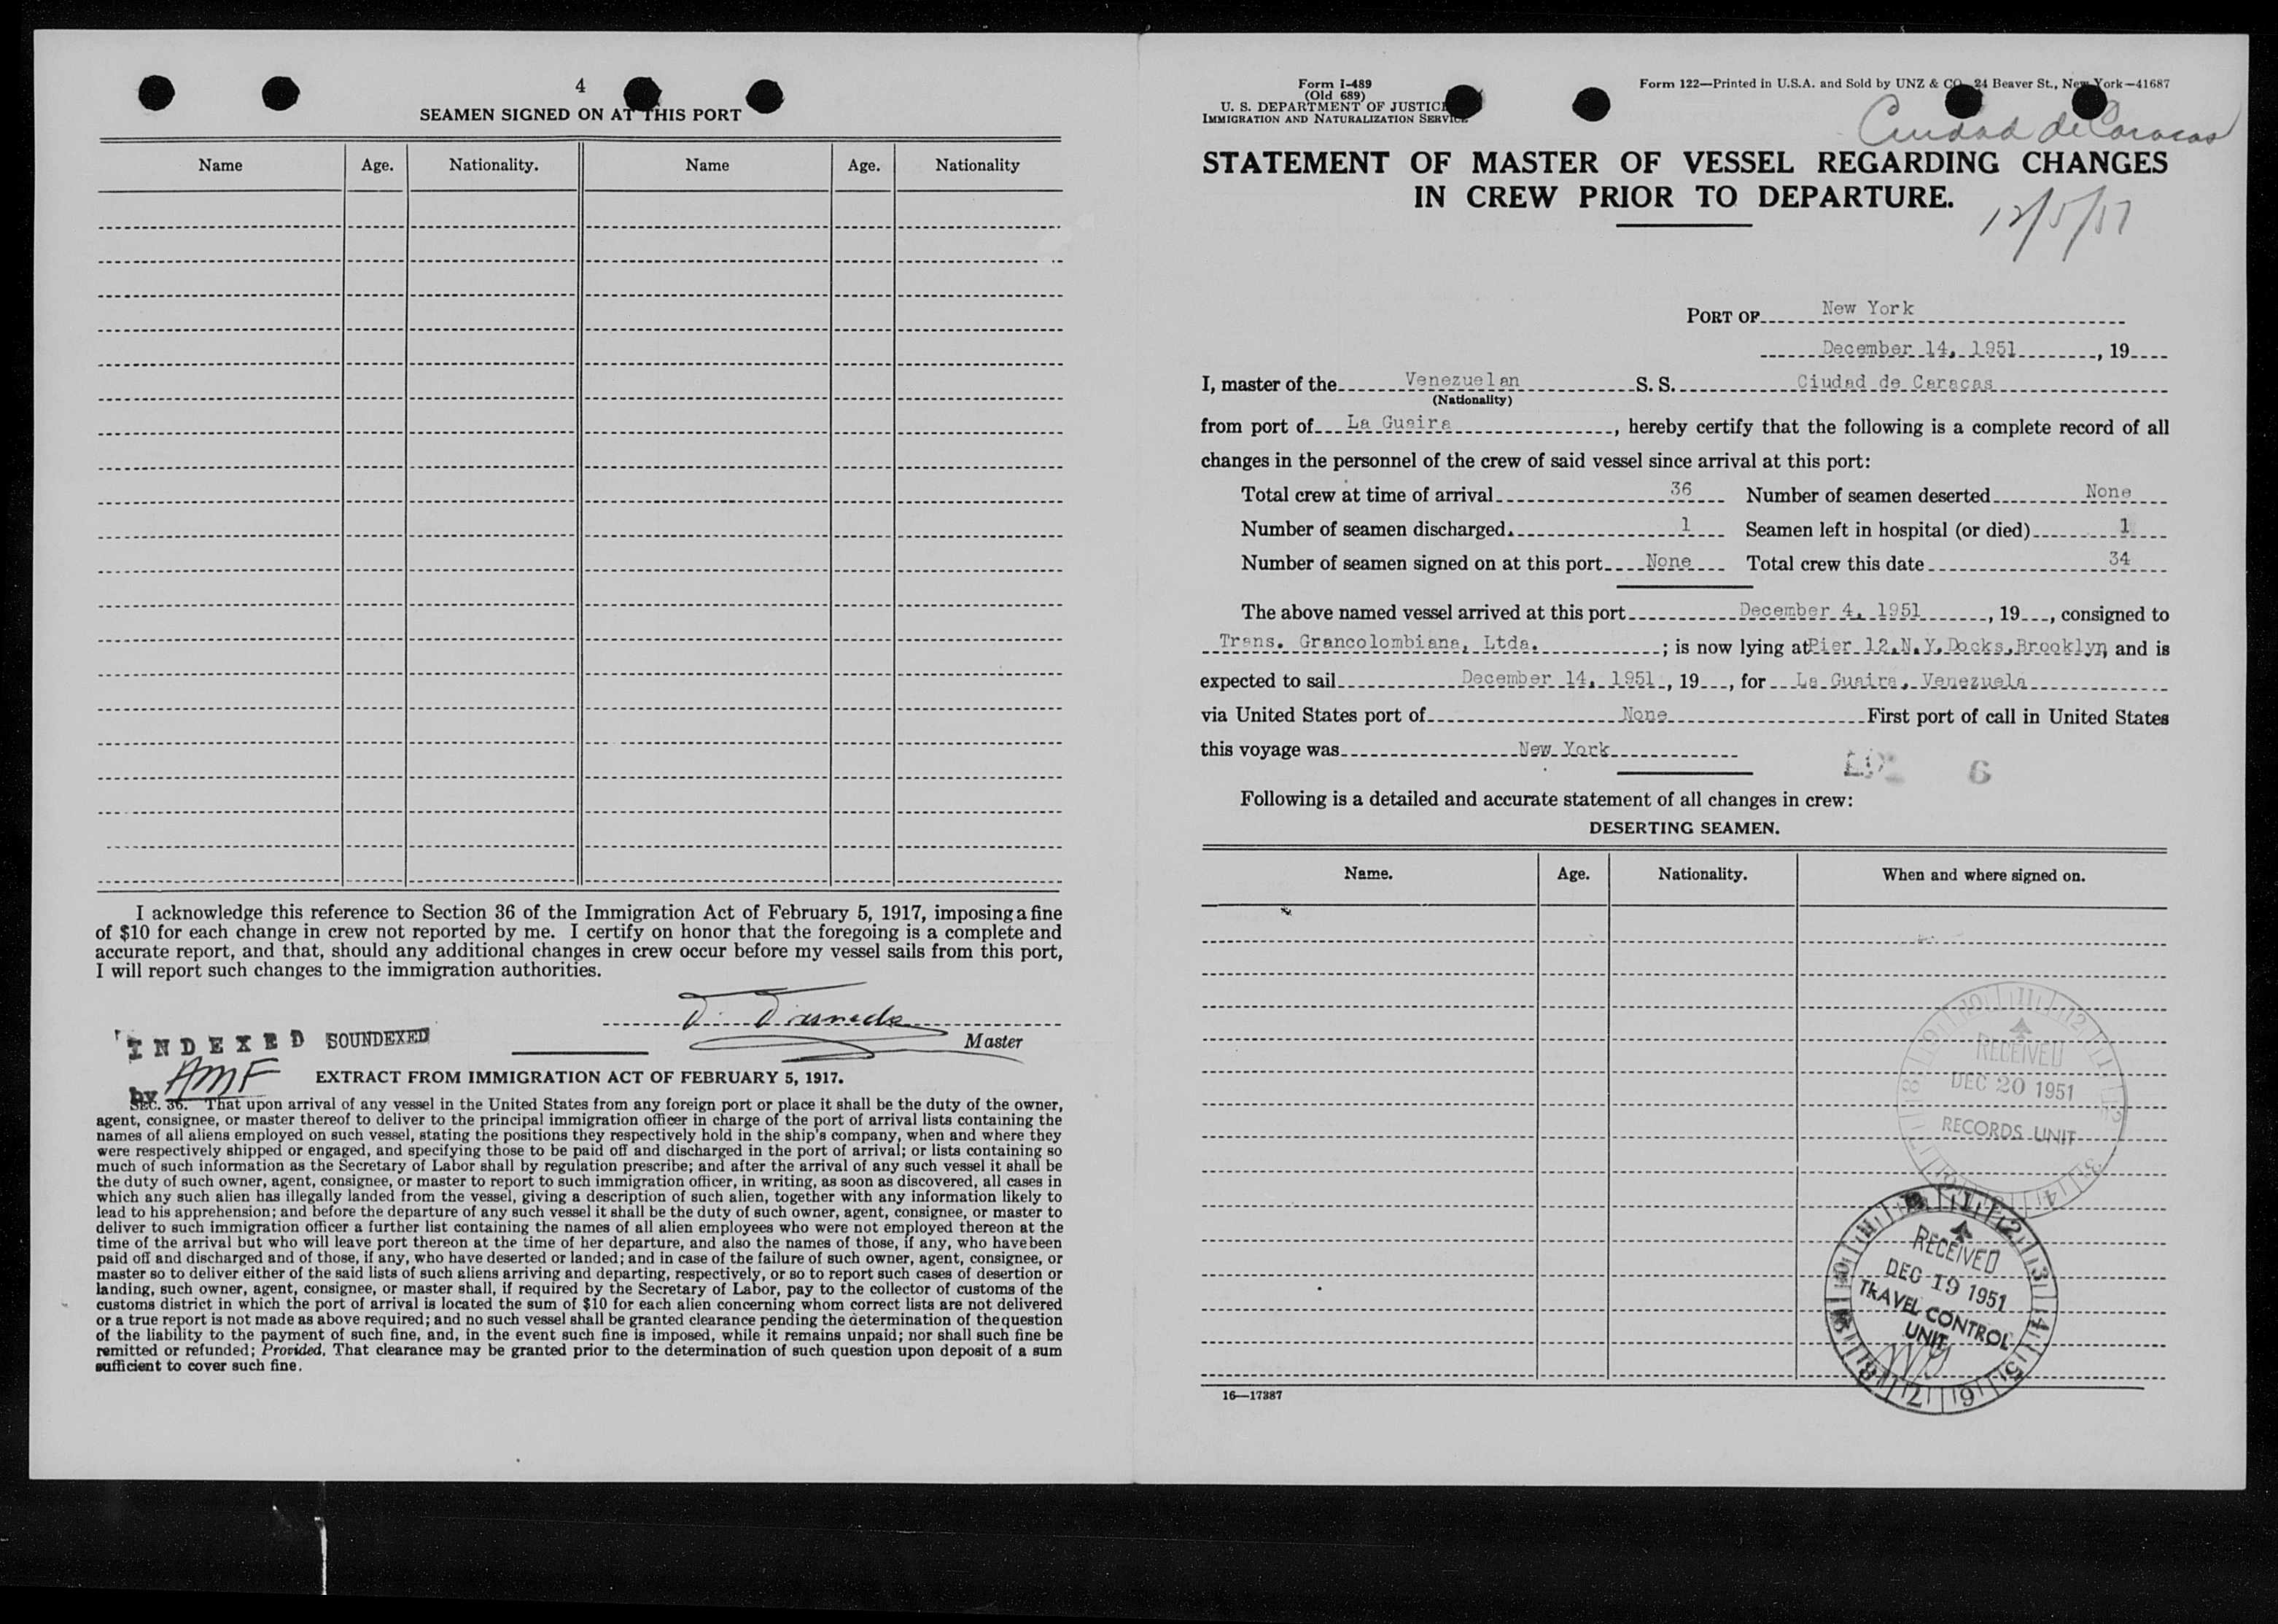 4
SEAMEN SIGNED ON AT THIS PORT
Name Age. Nationality. Name Age. Nationality
I acknowledge this reference to Section 36 of the Immigration Act of February 5, 1917, imposing a fine
of $10 for each change in crew not reported by me. I certify on honor that the foregoing is a complete and
accurate report, and that, should any additional changes in crew occur before my vessel sails from this port,
I will report such changes to the immigration authorities.
Master
INDEXED SOUNDEXED
by AMF
EXTRACT FROM IMMIGRATION ACT OF FEBRUARY 5, 1917.
SEC. 36. That upon arrival of any vessel in the United States from any foreign port or place it shall be the duty of the owner,
agent, consignee, or master thereof to deliver to the principal immigration officer in charge of the port of arrival lists containing the
names of all aliens employed on such vessel, stating the positions they respectively hold in the ship's company, when and where they
were respectively shipped or engaged, and specifying those to be paid off and discharged in the port of arrival; or lists containing so
much of such information as the Secretary of Labor shall by regulation prescribe; and after the arrival of any such vessel it shall be
the duty of such owner, agent, consignee, or master to report to such immigration officer, in writing, as soon as discovered, all cases in
which any such alien has illegally landed from the vessel, giving a description of such alien, together with any information likely to
lead to his apprehension; and before the departure of any such vessel it shall be the duty of such owner, agent, consignee, or master to
deliver to such immigration officer a further list containing the names of all alien employees who were not employed thereon at the
time of the arrival but who will leave port thereon at the time of her departure, and also the names of those, if any, who have been
paid off and discharged and of those, if any, who have deserted or landed; and in case of the failure of such owner, agent, consignee, or
master so to deliver either of the said lists of such aliens arriving and departing, respectively, or so to report such cases of desertion or
landing, such owner, agent, consignee, or master shall, if required by the Secretary of Labor, pay to the collector of customs of the
customs district in which the port of arrival is located the sum of $10 for each alien concerning whom correct lists are not delivered
or a true report is not made as above required; and no such vessel shall be granted clearance pending the determination of the question
of the liability to the payment of such fine, and, in the event such fine is imposed, while it remains unpaid; nor shall such fine be
remitted or refunded; Provided, That clearance may be granted prior to the determination of such question upon deposit of a sum
sufficient to cover such fine.
Form I-489
(Old 689)
U. S. DEPARTMENT OF JUSTICE
IMMIGRATION AND NATURALIZATION SERVICE
Form 122—Printed in U.S.A. and Sold by UNZ & CO. 24 Beaver St., New York—41687
Ciudad de Caracas
STATEMENT OF MASTER OF VESSEL REGARDING CHANGES
IN CREW PRIOR TO DEPARTURE.
12/5/51
PORT OF New York
December 14, 1951, 19
I, master of the Venezuelan S. S. Ciudad de Caracas
(Nationality)
from port of La Guaira, hereby certify that the following is a complete record of all
changes in the personnel of the crew of said vessel since arrival at this port:
Total crew at time of arrival 36 Number of seamen deserted None
Number of seamen discharged 1 Seamen left in hospital (or died) 1
Number of seamen signed on at this port None Total crew this date 34
The above named vessel arrived at this port December 4, 1951, 19, consigned to
Trans. Grancolombiana, Ltda.; is now lying at Pier 12, N.Y. Docks, Brooklyn, and is
expected to sail December 14, 1951, 19, for La Guaira, Venezuela
via United States port of None First port of call in United States
this voyage was New York
6
Following is a detailed and accurate statement of all changes in crew:
DESERTING SEAMEN.
Name. Age. Nationality. When and where signed on.
RECEIVED
DEC 20 1951
RECORDS UNIT
RECEIVED
DEC 19 1951
TRAVEL CONTROL
UNIT
16—17387